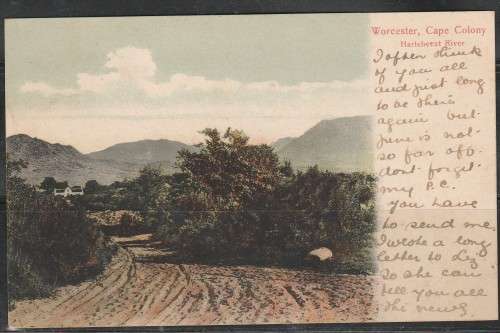 Worcester, Cape Colony
Hartebeest River
I often think
of you all
and just long
to be their
again but
June is not
so far off
dont forget
my P.C.
you have
to send me
I wrote a long
letter to Liz
so she can
tell you all
the news